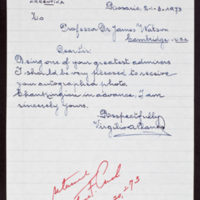 ARGENTINA
Rosario, 2-1-3, 1973
To
Professor Dr James Watson
Cambridge, USA
Dear Sir:
Being one of your greatest admirers
I should be very pleased to receive
your autographed photo
Thanking you in advance, I am
sincerely yours.
Respectfully
Virgilio